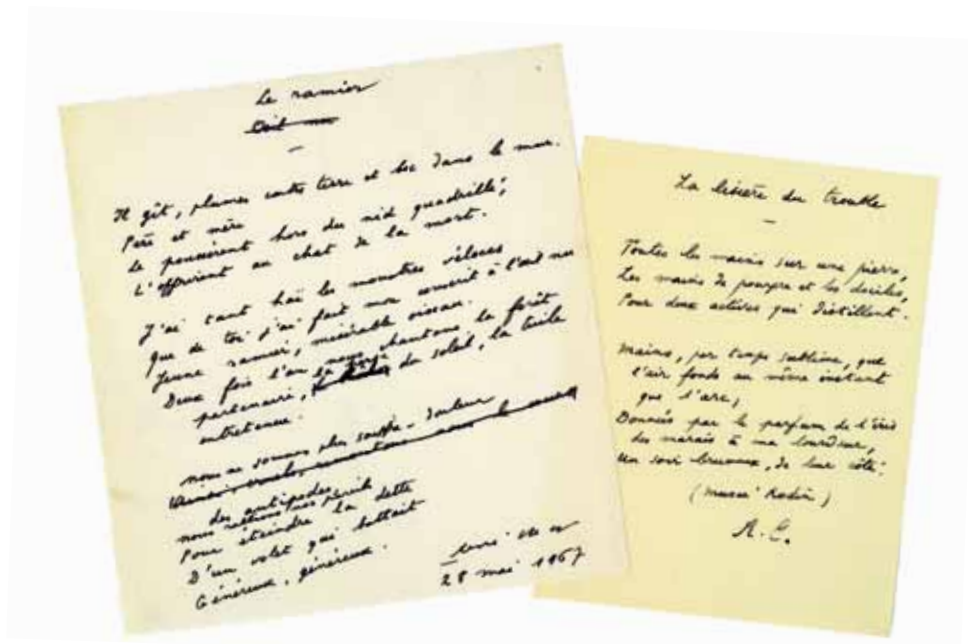 Le ramier
Il gît, plumes contre terre et bec dans le mur.
Père et mère
Le poussèrent hors du nid quadrillé,
L'offrirent au chat de la mort.
J'ai tant haï les monstres véloces
Que de toi j'ai fait mon conscrit à l'œil nu
Jeune ramier, misérable oiseau.
Deux fois l'an nous chantons la forêt
partenaire, du soleil, la tuile
entretenue.
nous ne sommes plus souffre-douleur
des antipodes.
nous rallions nos pareils
Pour éteindre la dette
D'un volet qui battait
Généreux, généreux.
28 mai 1967
La lisière du trouble
Toutes les mains sur une pierre,
Les mains de pourpre et les dociles,
Pour deux actives qui distillent.
Mains, par temps sublime, que
l'air fonde au même instant
que l'arc,
Données par le parfum de l'iris
des marais à ma lourdeur,
Un soir brumeux, de leur côté.
(Musée Rodin)
R.C.